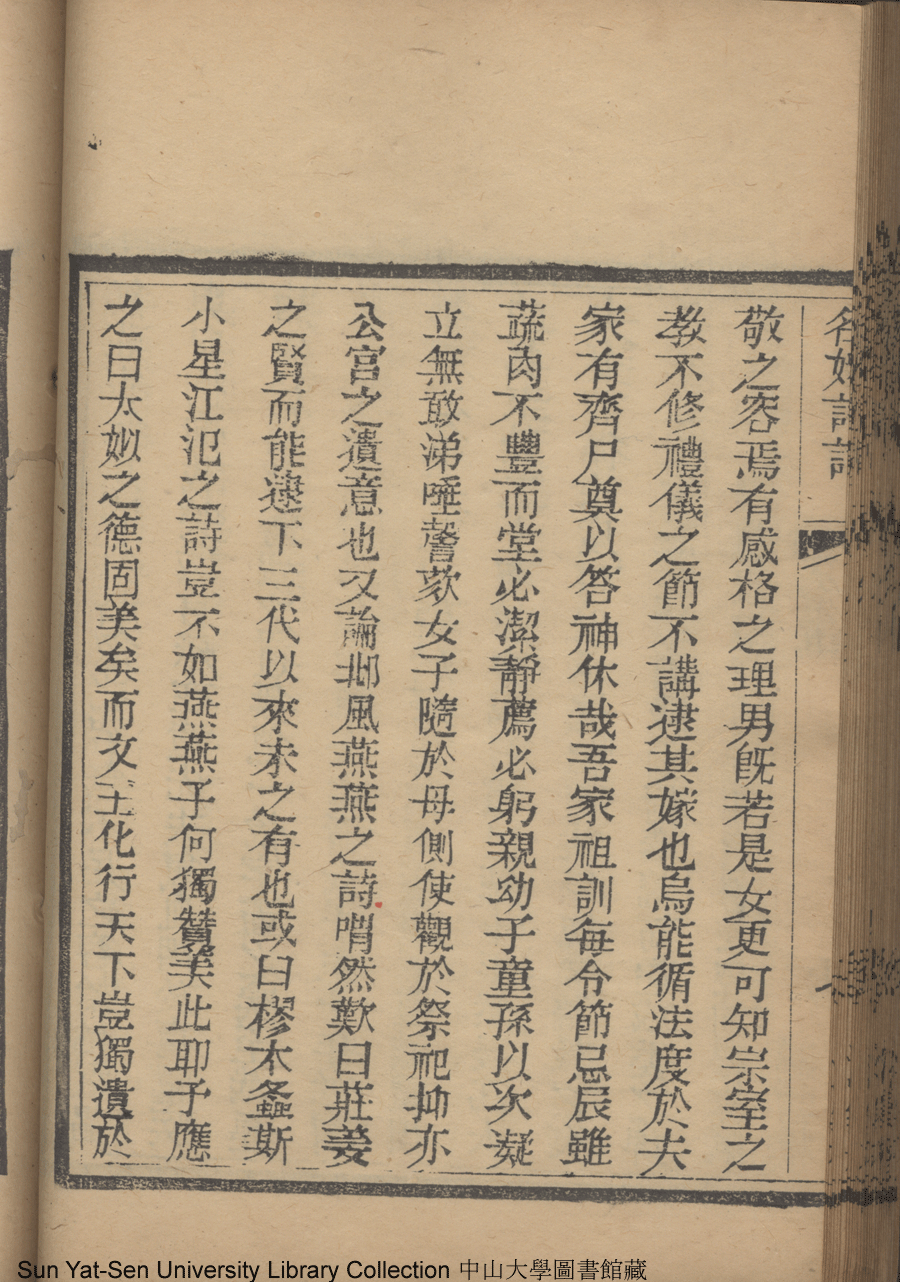 名媛詩話
敬之容焉有感格之理男旣若是女更可知宗室之
教不修禮儀之節不講逮其嫁也烏能循法度於夫
家有齊尸奠以答神休哉吾家祖訓每令節忌辰雖
蔬肉不豐而堂必潔靜薦必躬親幼子童孫以次凝
立無敢涕唾謦欬女子隨於母側使觀於祭祀抑亦
公宮之遺意也又論邶風燕燕之詩喟然歎曰莊姜
之賢而能逮下三代以來未之有也或曰樛木螽斯
小星江汜之詩豈不如燕燕子何獨贊美此耶予應
之曰太姒之德固美矣而文王化行天下豈獨遺於
Sun Yat-Sen University Library Collection 中山大學圖書館藏